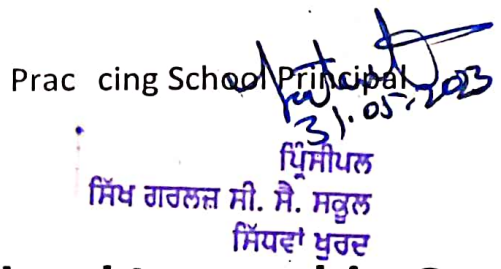 Prac cing School Principal
31.05.2023
ਪ੍ਰਿੰਸੀਪਲ
ਸਿੱਖ ਗਰਲਜ਼ ਸੀ. ਸੈ. ਸਕੂਲ
ਸਿੱਧਵਾਂ ਖੁਰਦ